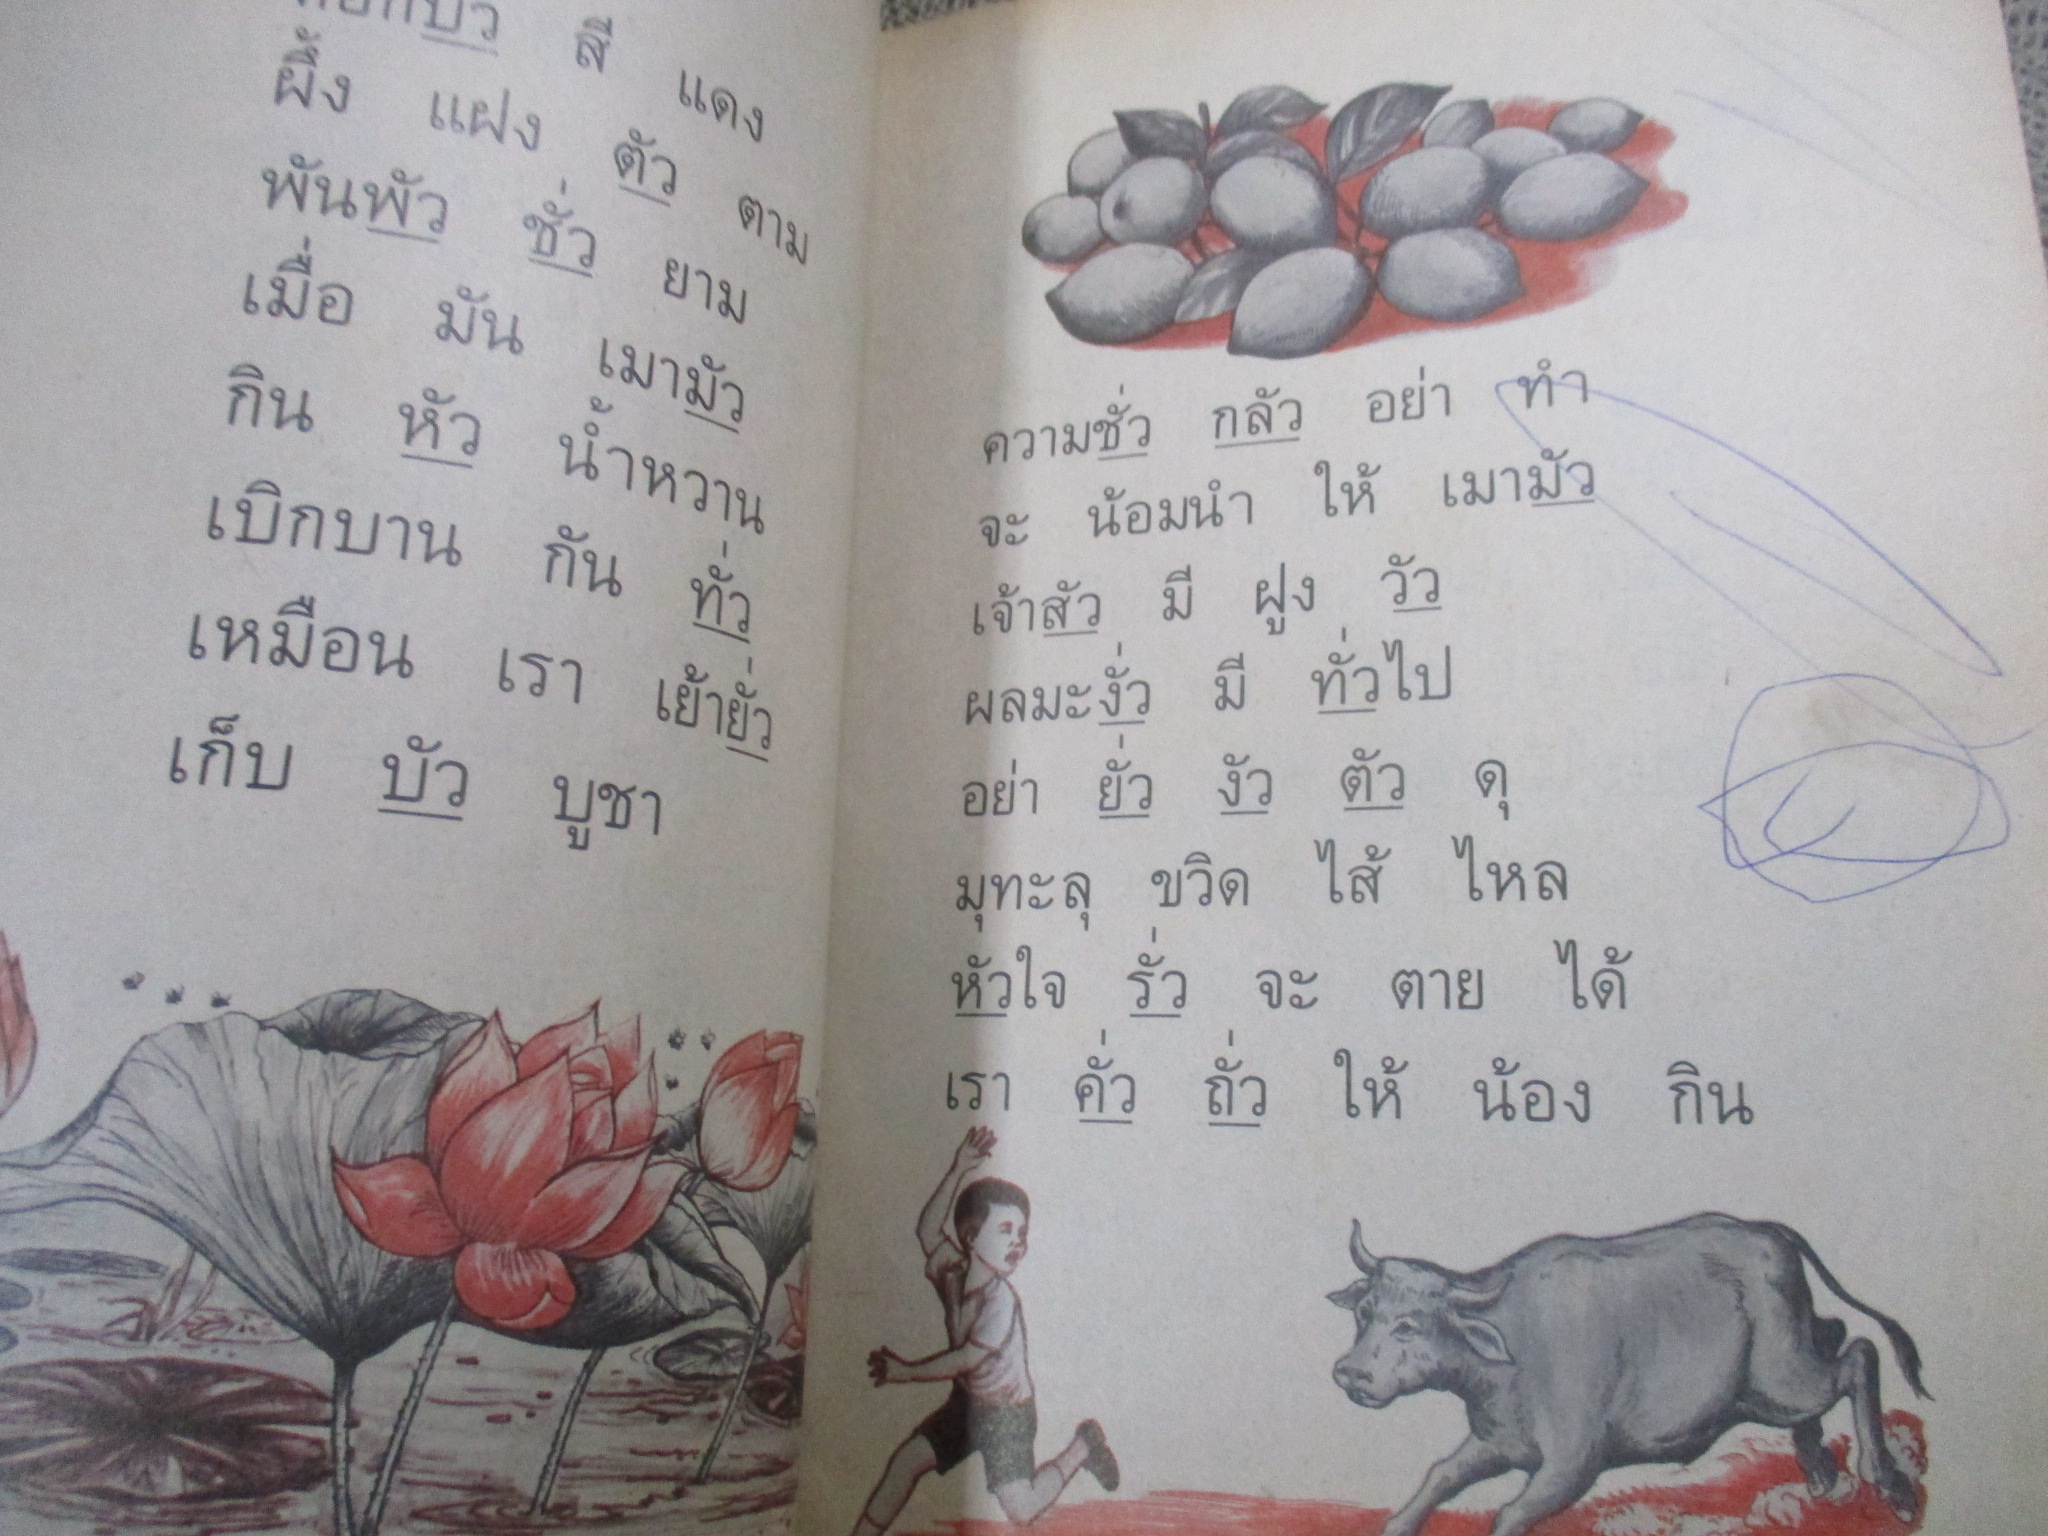 สี แดง
ผึ้ง แฝง ตัว ตาม
พันพัว ชั่ว ยาม
เมื่อ มัน เมามัว
กิน หัว น้ำหวาน
เบิกบาน กัน ทั่ว
เหมือน เรา เย้ายั่ว
เก็บ บัว บูชา
ความชั่ว กลัว อย่า ทำ
จะ น้อมนำ ให้ เมามัว
เจ้าสัว มี ฝูง วัว
ผลมะงั่ว มี ทั่วไป
อย่า ยั่ว งัว ตัว ดุ
มุทะลุ ขวิด ไส้ ไหล
หัวใจ รั่ว จะ ตาย ได้
เรา คั่ว ถั่ว ให้ น้อง กิน